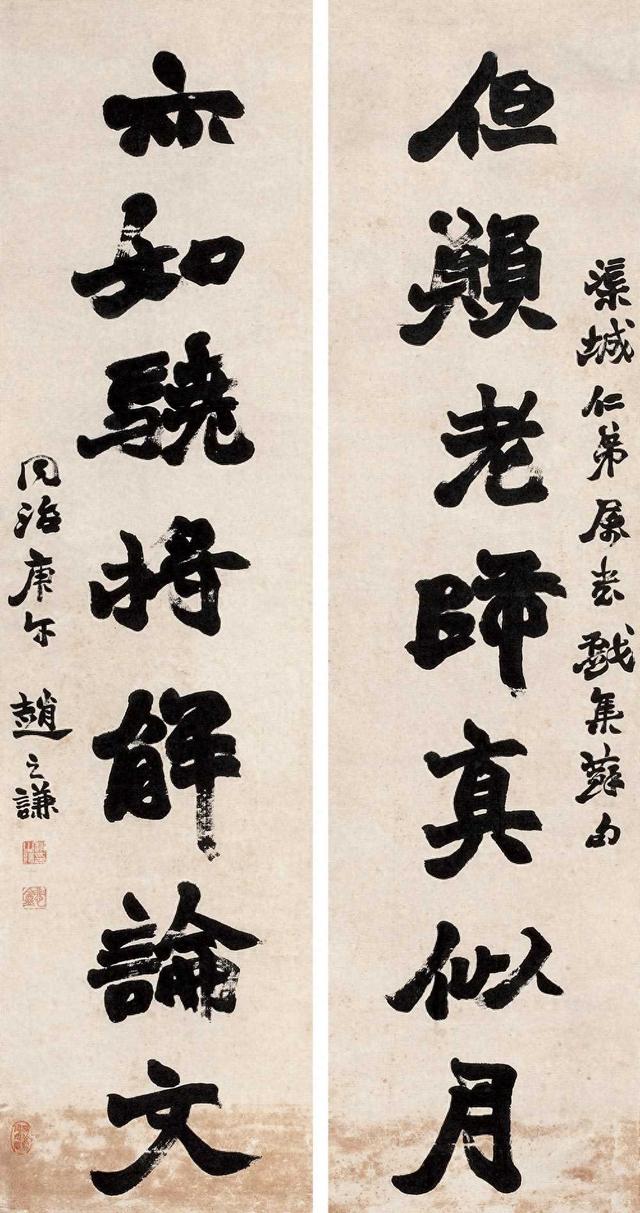 渠城仁弟屬書戲集蘇句
但願老師真似月
亦知驍將解論文
同治庚午 趙之謙